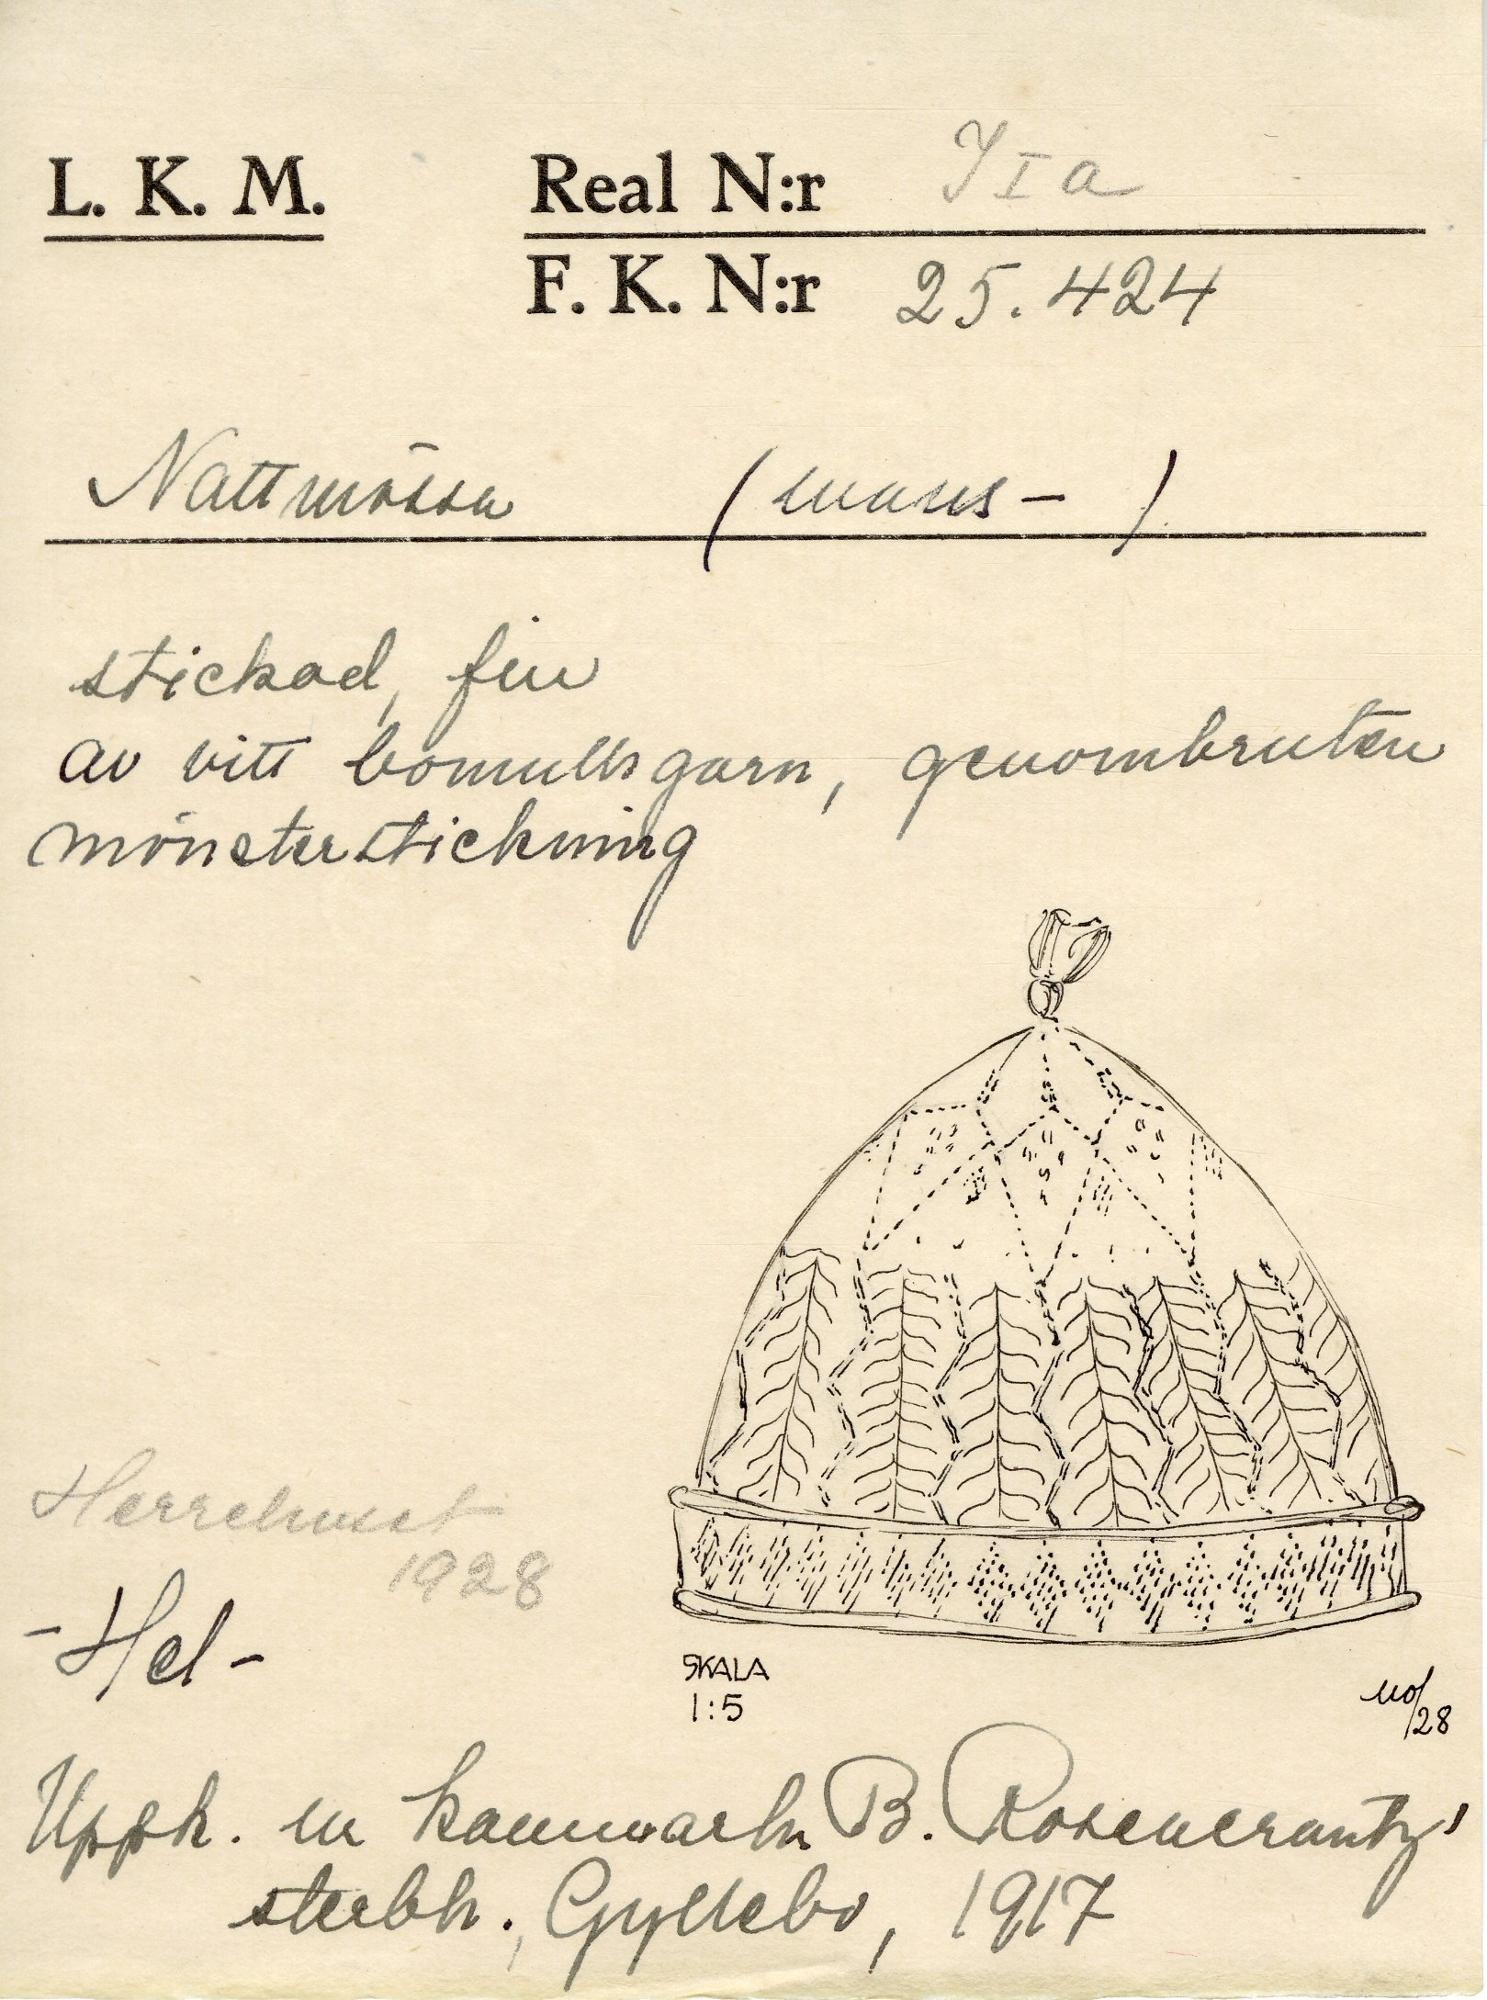 L. K. M.
Real N:r YIa
F. K. N:r 25.424
Nattmössa (mans-)
stickad, fin
av vitt bomullsgarn, genombruten
mönsterstickning
1928
-Hel-
SKALA
1:5
MO/28
Uppk. ur kammarh. B. Rosencrantz'
sterbh., Gyllebo, 1917